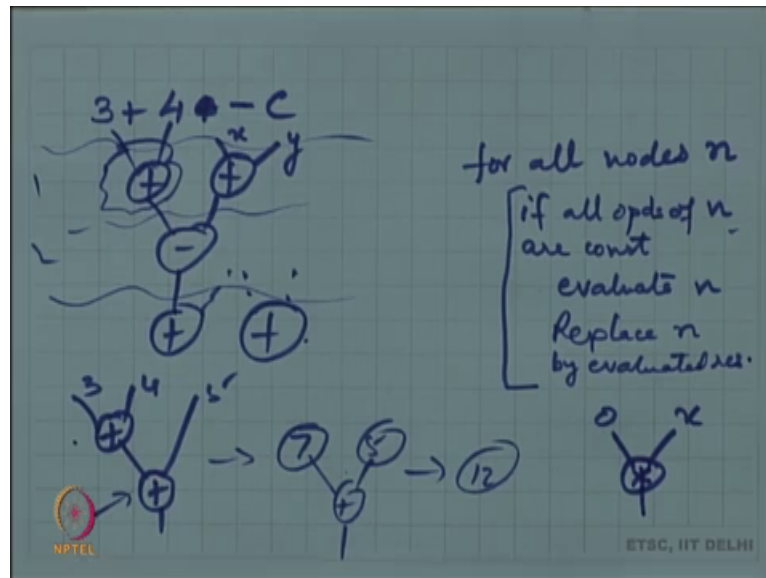 3 + 4 - C
+ + x y
-
+ +
for all nodes n
if all opds of n
are const
evaluate n
Replace n
by evaluated res.
3 4 5
+
+
→ 7 5
+
→ 12
0 x
*
NPTEL
ETSC, IIT DELHI